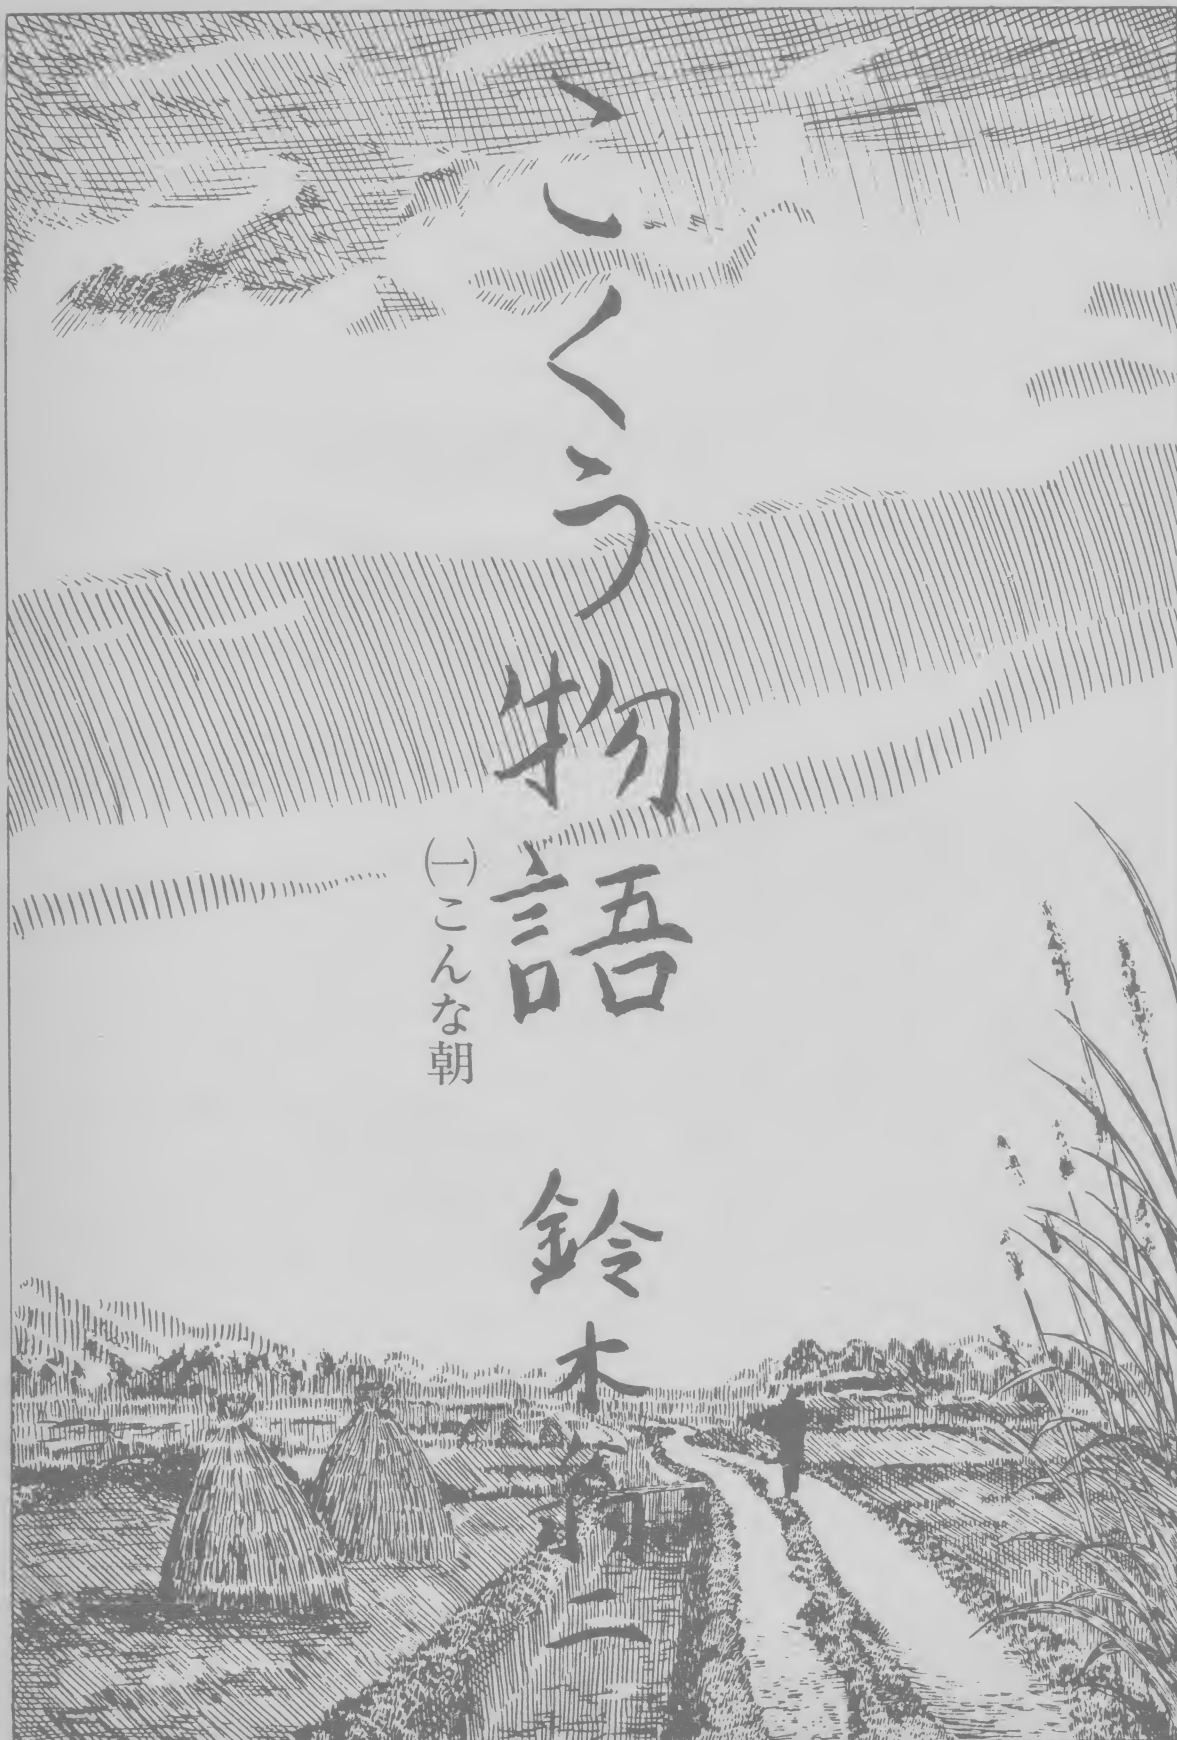 こくう物語
㈠こんな朝
鈴木翁二